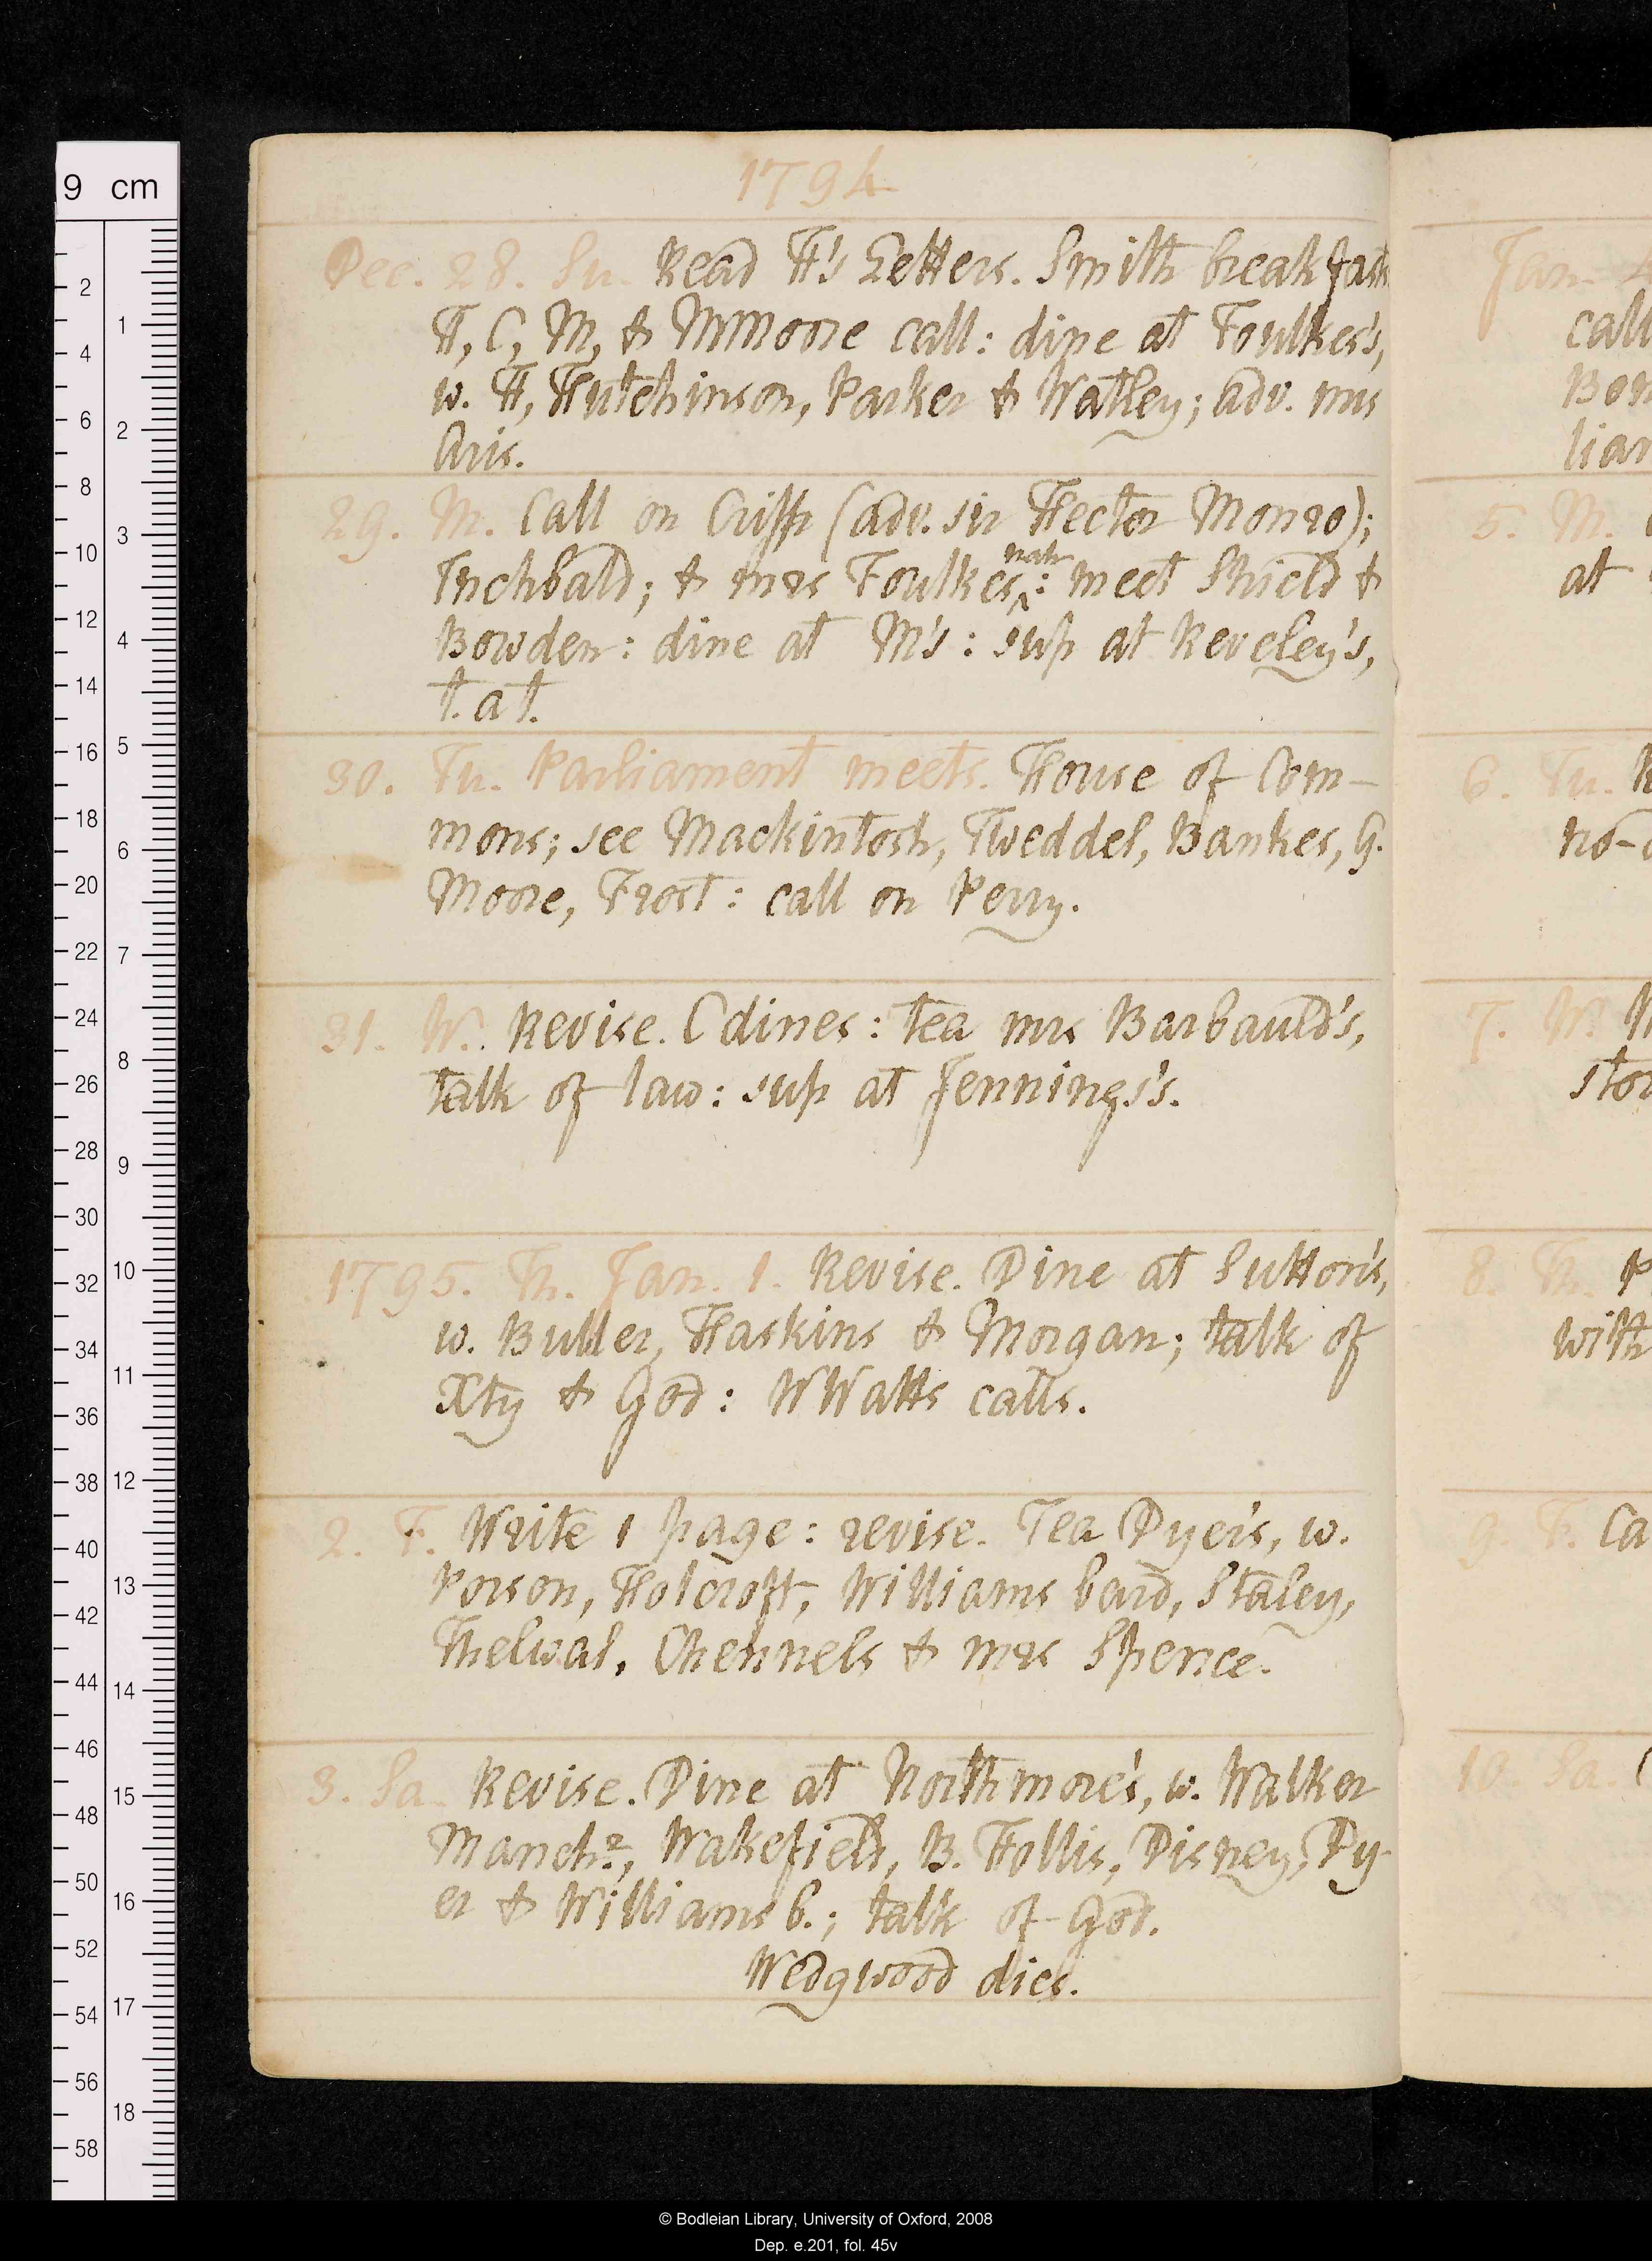 1794
Dec. 28. Su. Read H's Letters. Smith breakfasts
H, C, M, & MMoore call: dine at Foulkes's,
w. H, Hutchinson, Parker & Watley; adv. mis
Aris.
29. M. Call on Crisp (adv. sir Hector Monro);
Inchbald; & mrs Foulkes nah: meet Shield &
Bowden: dine at M's: sup at Reveley's,
t. a t.
30. Tu. Parliament meets. House of Com-
mons; see Mackintosh, Tweddel, Bankes, G.
Moore, Frost: call on Perry.
31. W. Revise. C dines: tea mrs Barbauld's,
talk of law: sup at Jennings's.
1795. Th. Jan. 1. Revise. Dine at Sutton's,
w. Butler, Haskins & Morgan; talk of
Xty & God: WWatts calls.
2. F. Write 1 page: revise. Tea Dyer's, w.
Porson, Holcroft, Williams bard, Staley,
Thelwal, Chennels & mrs Spence.
3. Sa. Revise. Dine at Northmore's, w. Walker
Manchr, Wakefield, B. Hollis, Disney, Dy-
er & Williams b.; talk of God.
Wedgwood dies.
Jan. 4
call
5. M.
at
6. Tu.
no-
7. W.
8. Th.
with
9. F.
10. Sa.
9 cm
2 4 6 8 10 12 14 16 18 20 22 24 26 28 30 32 34 36 38 40 42 44 46 48 50 52 54 56 58
1 2 3 4 5 6 7 8 9 10 11 12 13 14 15 16 17 18
© Bodleian Library, University of Oxford, 2008
Dep. e.201, fol. 45v